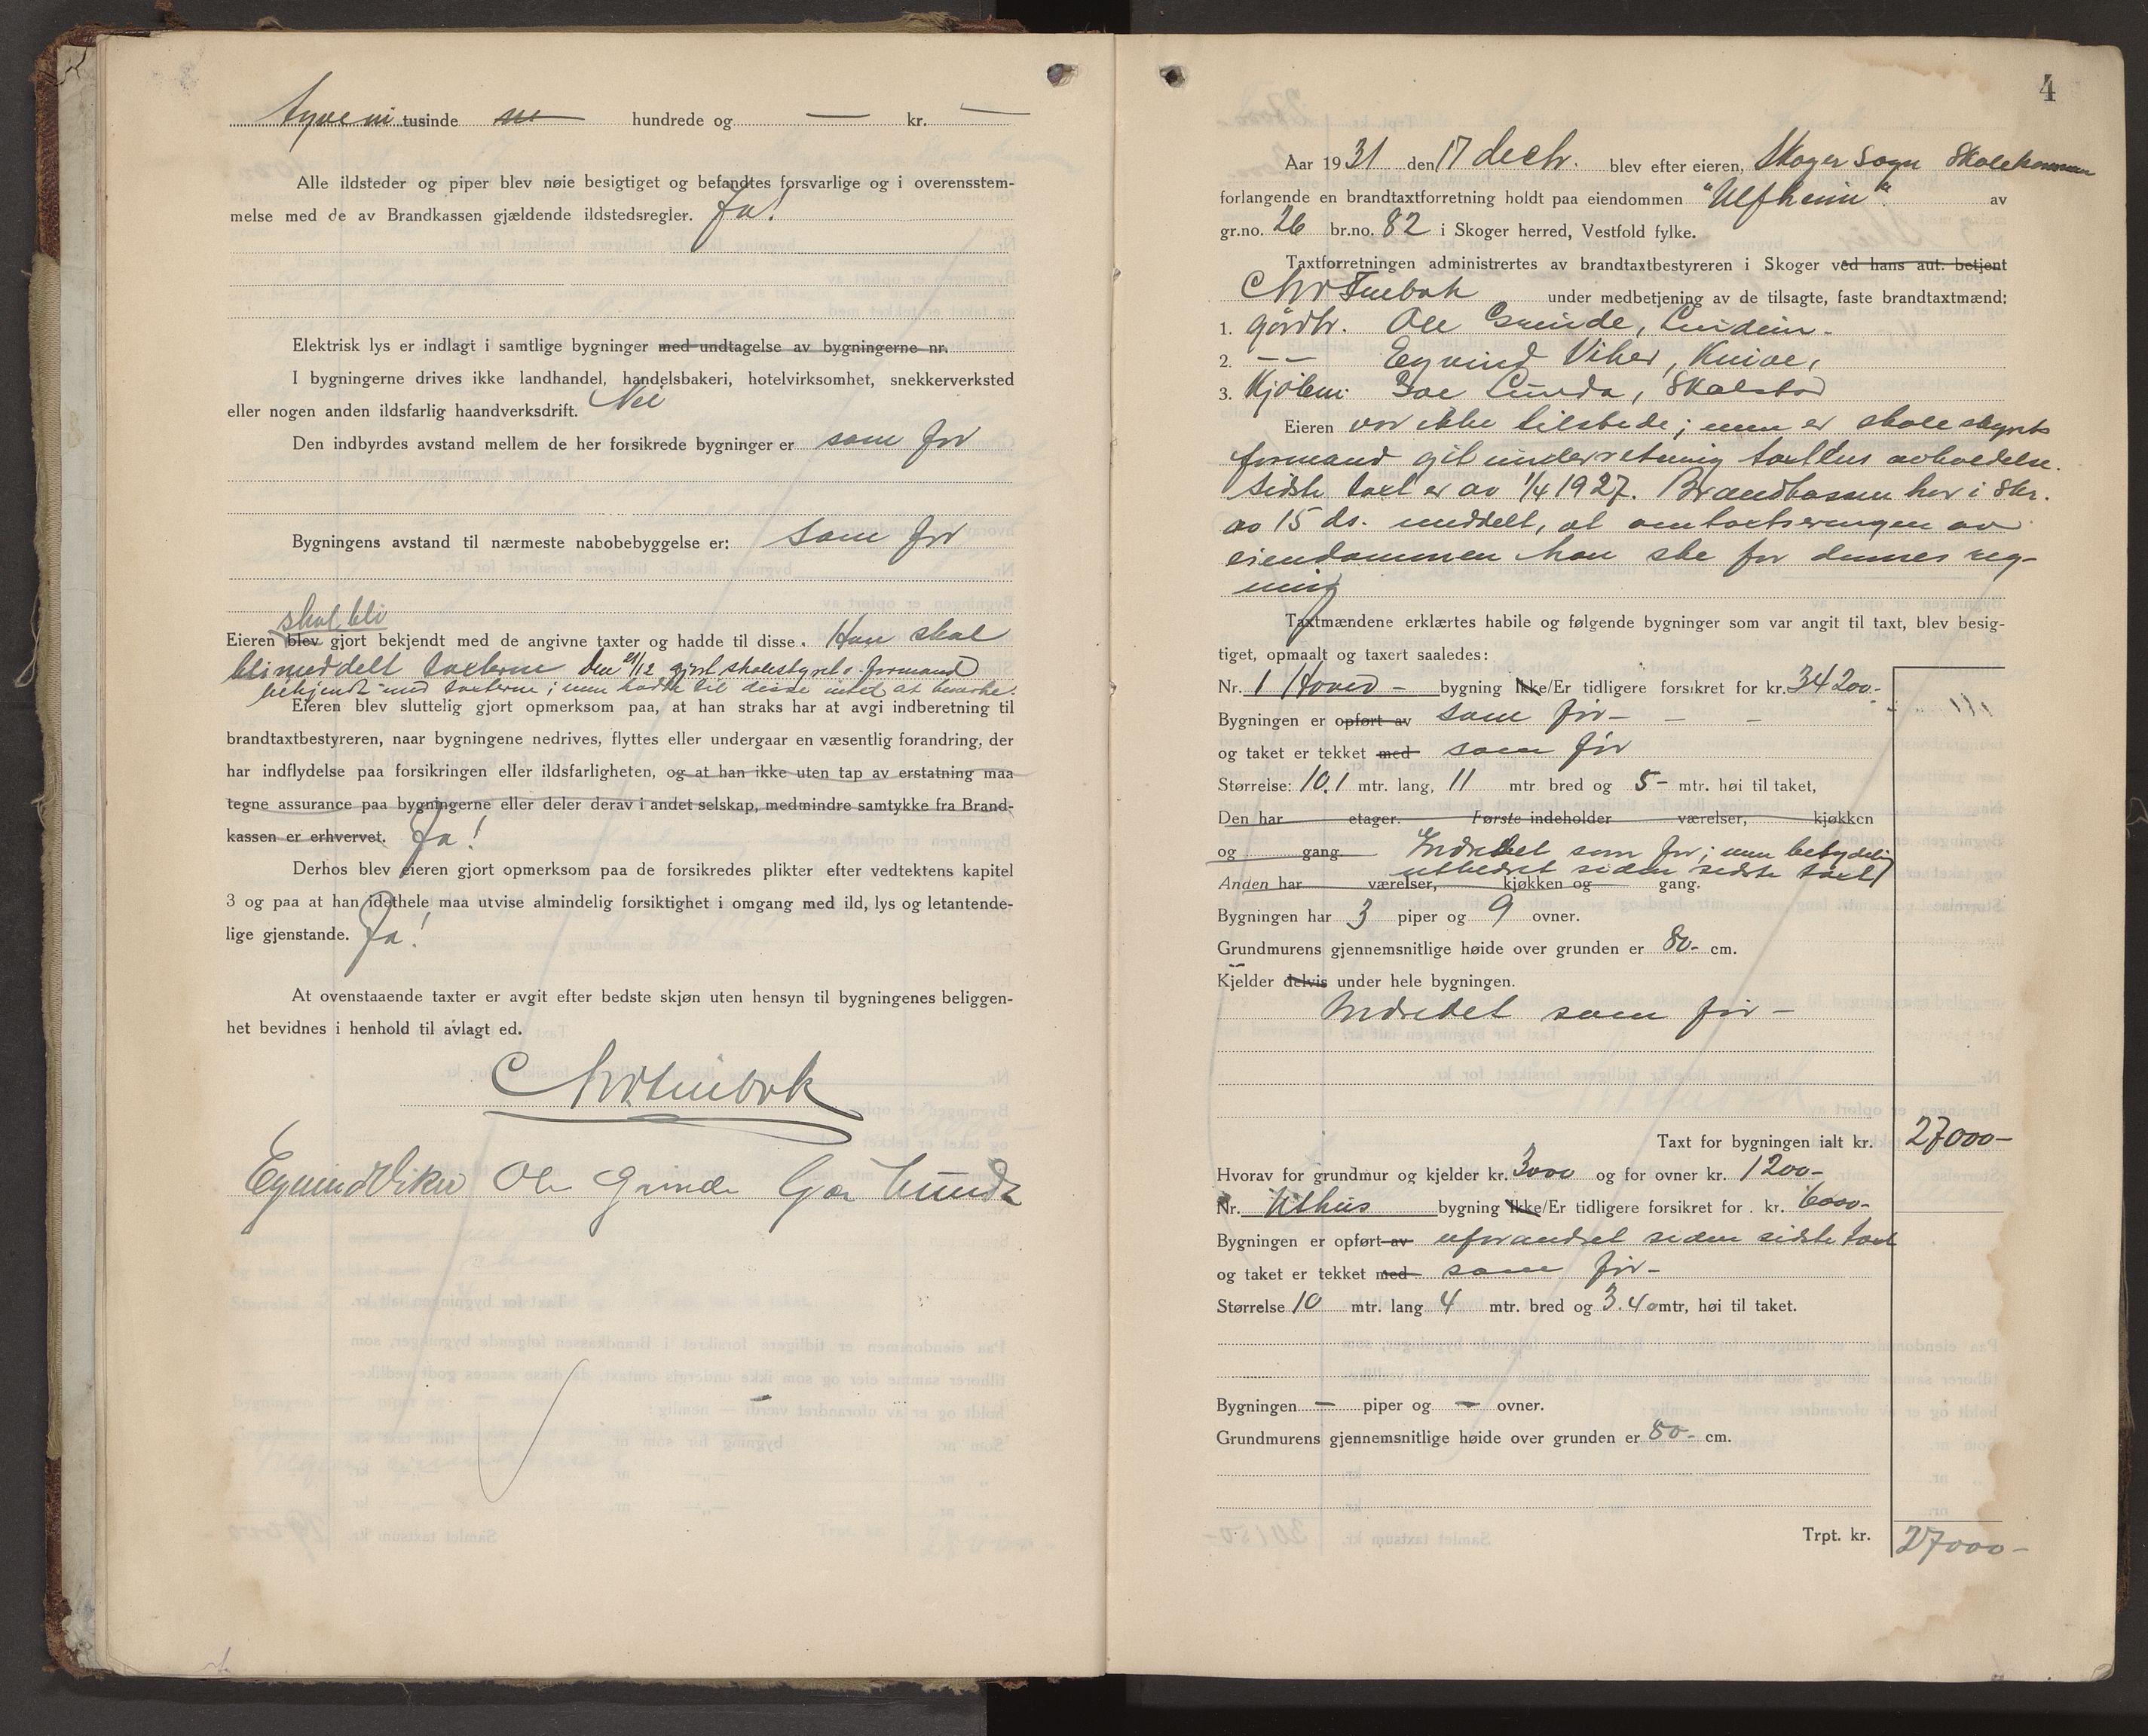 tyve ni tusinde hundrede og — kr. —
Alle ildsteder og piper blev nøie besigtiget og befandtes forsvarlige og i overensstem-
melse med de av Brandkassen gjældende ildstedsregler. Ja!
Elektrisk lys er indlagt i samtlige bygninger med undtagelse av bygningerne nr.
I bygningerne drives ikke landhandel, handelsbakeri, hotelvirksomhet, snekkerverksted
eller nogen anden ildsfarlig haandverksdrift. Nei
Den indbyrdes avstand mellem de her forsikrede bygninger er som før
Bygningens avstand til nærmeste nabobebyggelse er: som før
skal bli
Eieren blev gjort bekjendt med de angivne taxter og hadde til disse. Han skal
bli meddelt taxterne den 21/12 gjort skolestyrets formand
bekjendt med taxterne; men hadde til disse intet at bemerke.
Eieren blev sluttelig gjort opmerksom paa, at han straks har at avgi indberetning til
brandtaxtbestyreren, naar bygningene nedrives, flyttes eller undergaar en væsentlig forandring, der
har indflydelse paa forsikringen eller ildsfarligheten, og at han ikke uten tap av erstatning maa
tegne assurance paa bygningerne eller deler derav i andet selskap, medmindre samtykke fra Brand-
kassen er erhvervet. Ja!
Derhos blev eieren gjort opmerksom paa de forsikredes plikter efter vedtektens kapitel
3 og paa at han idethele maa utvise almindelig forsiktighet i omgang med ild, lys og letantende-
lige gjenstande. Ja!
At ovenstaaende taxter er avgit efter bedste skjøn uten hensyn til bygningenes beliggen-
het bevidnes i henhold til avlagt ed.
Eyvind Viker Ole Grinde Lunde
4
Aar 1931 den 17 decbr. blev efter eieren, Skoger Sogn Skolekommune
forlangende en brandtaxtforretning holdt paa eiendommen "Ulfheim" av
gr.no. 26 br.no. 82 i Skoger herred, Vestfold fylke.
Taxtforretningen administrertes av brandtaxtbestyreren i Skoger ved hans aut. betjent
under medbetjening av de tilsagte, faste brandtaxtmænd:
1. gårdbr. Ole Grinde,
2. — — Eyvind Viker, Knive,
3. Kjøbm. Lunde, Skalstad
Eieren var ikke tilstede; men er skolestyrets
formand git underretning taxtens avholdelse.
Sidste taxt er av 1/4 1927. Brandkassen har i skr.
av 15 ds. meddelt, at omtaxeringen av
eiendommen kan ske for dennes reg-
ning
Taxtmændene erklærtes habile og følgende bygninger som var angit til taxt, blev besig-
tiget, opmaalt og taxert saaledes:
Nr. 1 Hoved - bygning Ikke/Er tidligere forsikret for kr. 34200.-
Bygningen er opført av som før - - -
og taket er tekket med som før
Størrelse: 10.1 mtr. lang, 11 mtr. bred og 5 - mtr. høi til taket,
Den har etager. Første indeholder værelser, kjøkken
og gang. Indredet som før; men betydelig
utbedret siden sidste taxt
Anden har værelser, kjøkken og gang.
Bygningen har 3 piper og 9 ovner.
Grundmurens gjennemsnitlige høide over grunden er 80- cm.
Kjelder delvis under hele bygningen.
Indredet som før -
Taxt for bygningen ialt kr. 27000-
Hvorav for grundmur og kjelder kr. 3000 og for ovner kr. 1200-
Nr. Uthus bygning Ikke/Er tidligere forsikret for . kr. 6000-
Bygningen er opført av uforandret siden sidste taxt
og taket er tekket med som før -
Størrelse 10 mtr. lang 4 mtr. bred og 3.40 mtr, høi til taket.
Bygningen — piper og — ovner.
Grundmurens gjennemsnitlige høide over grunden er 50- cm.
Trpt. kr. 27000-